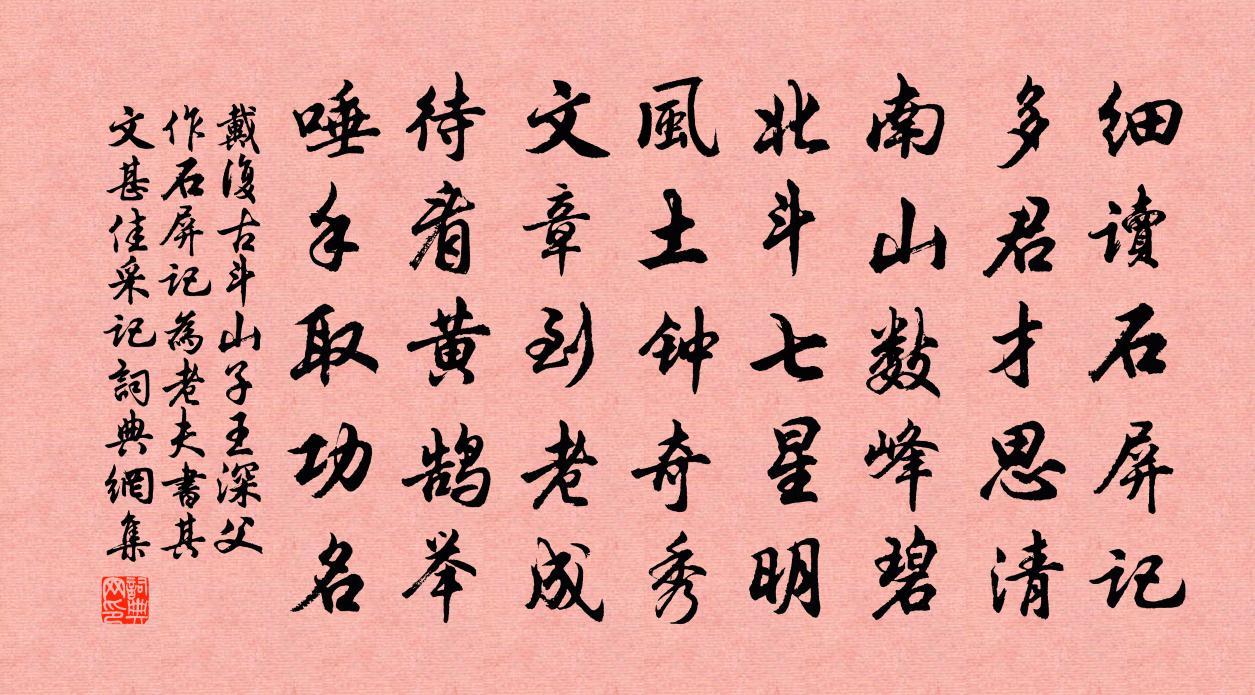 细读石屏记
多君才思清
南山数峰碧
北斗七星明
風土钟奇秀
文章到老成
待看黄鹄举
唾手取功名
戴復古斗山子王深父
作石屏記為老夫書其
文甚佳采記詞典網集
詞典網印